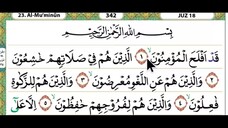 23. Al-Mu'minūn 342 JUZ 18
بِسْمِ اللّٰهِ الرَّحْمٰنِ الرَّحِيْمِ
قَدْ اَفْلَحَ الْمُؤْمِنُوْنَ ١ الَّذِيْنَ هُمْ فِيْ صَلَاتِهِمْ خٰشِعُوْنَ
٢ وَالَّذِيْنَ هُمْ عَنِ اللَّغْوِ مُعْرِضُوْنَ ٣ وَالَّذِيْنَ هُمْ لِلزَّكٰوةِ
فٰعِلُوْنَ ٤ وَالَّذِيْنَ هُمْ لِفُرُوْجِهِمْ حٰفِظُوْنَ ٥ اِلَّا عَلٰٓى